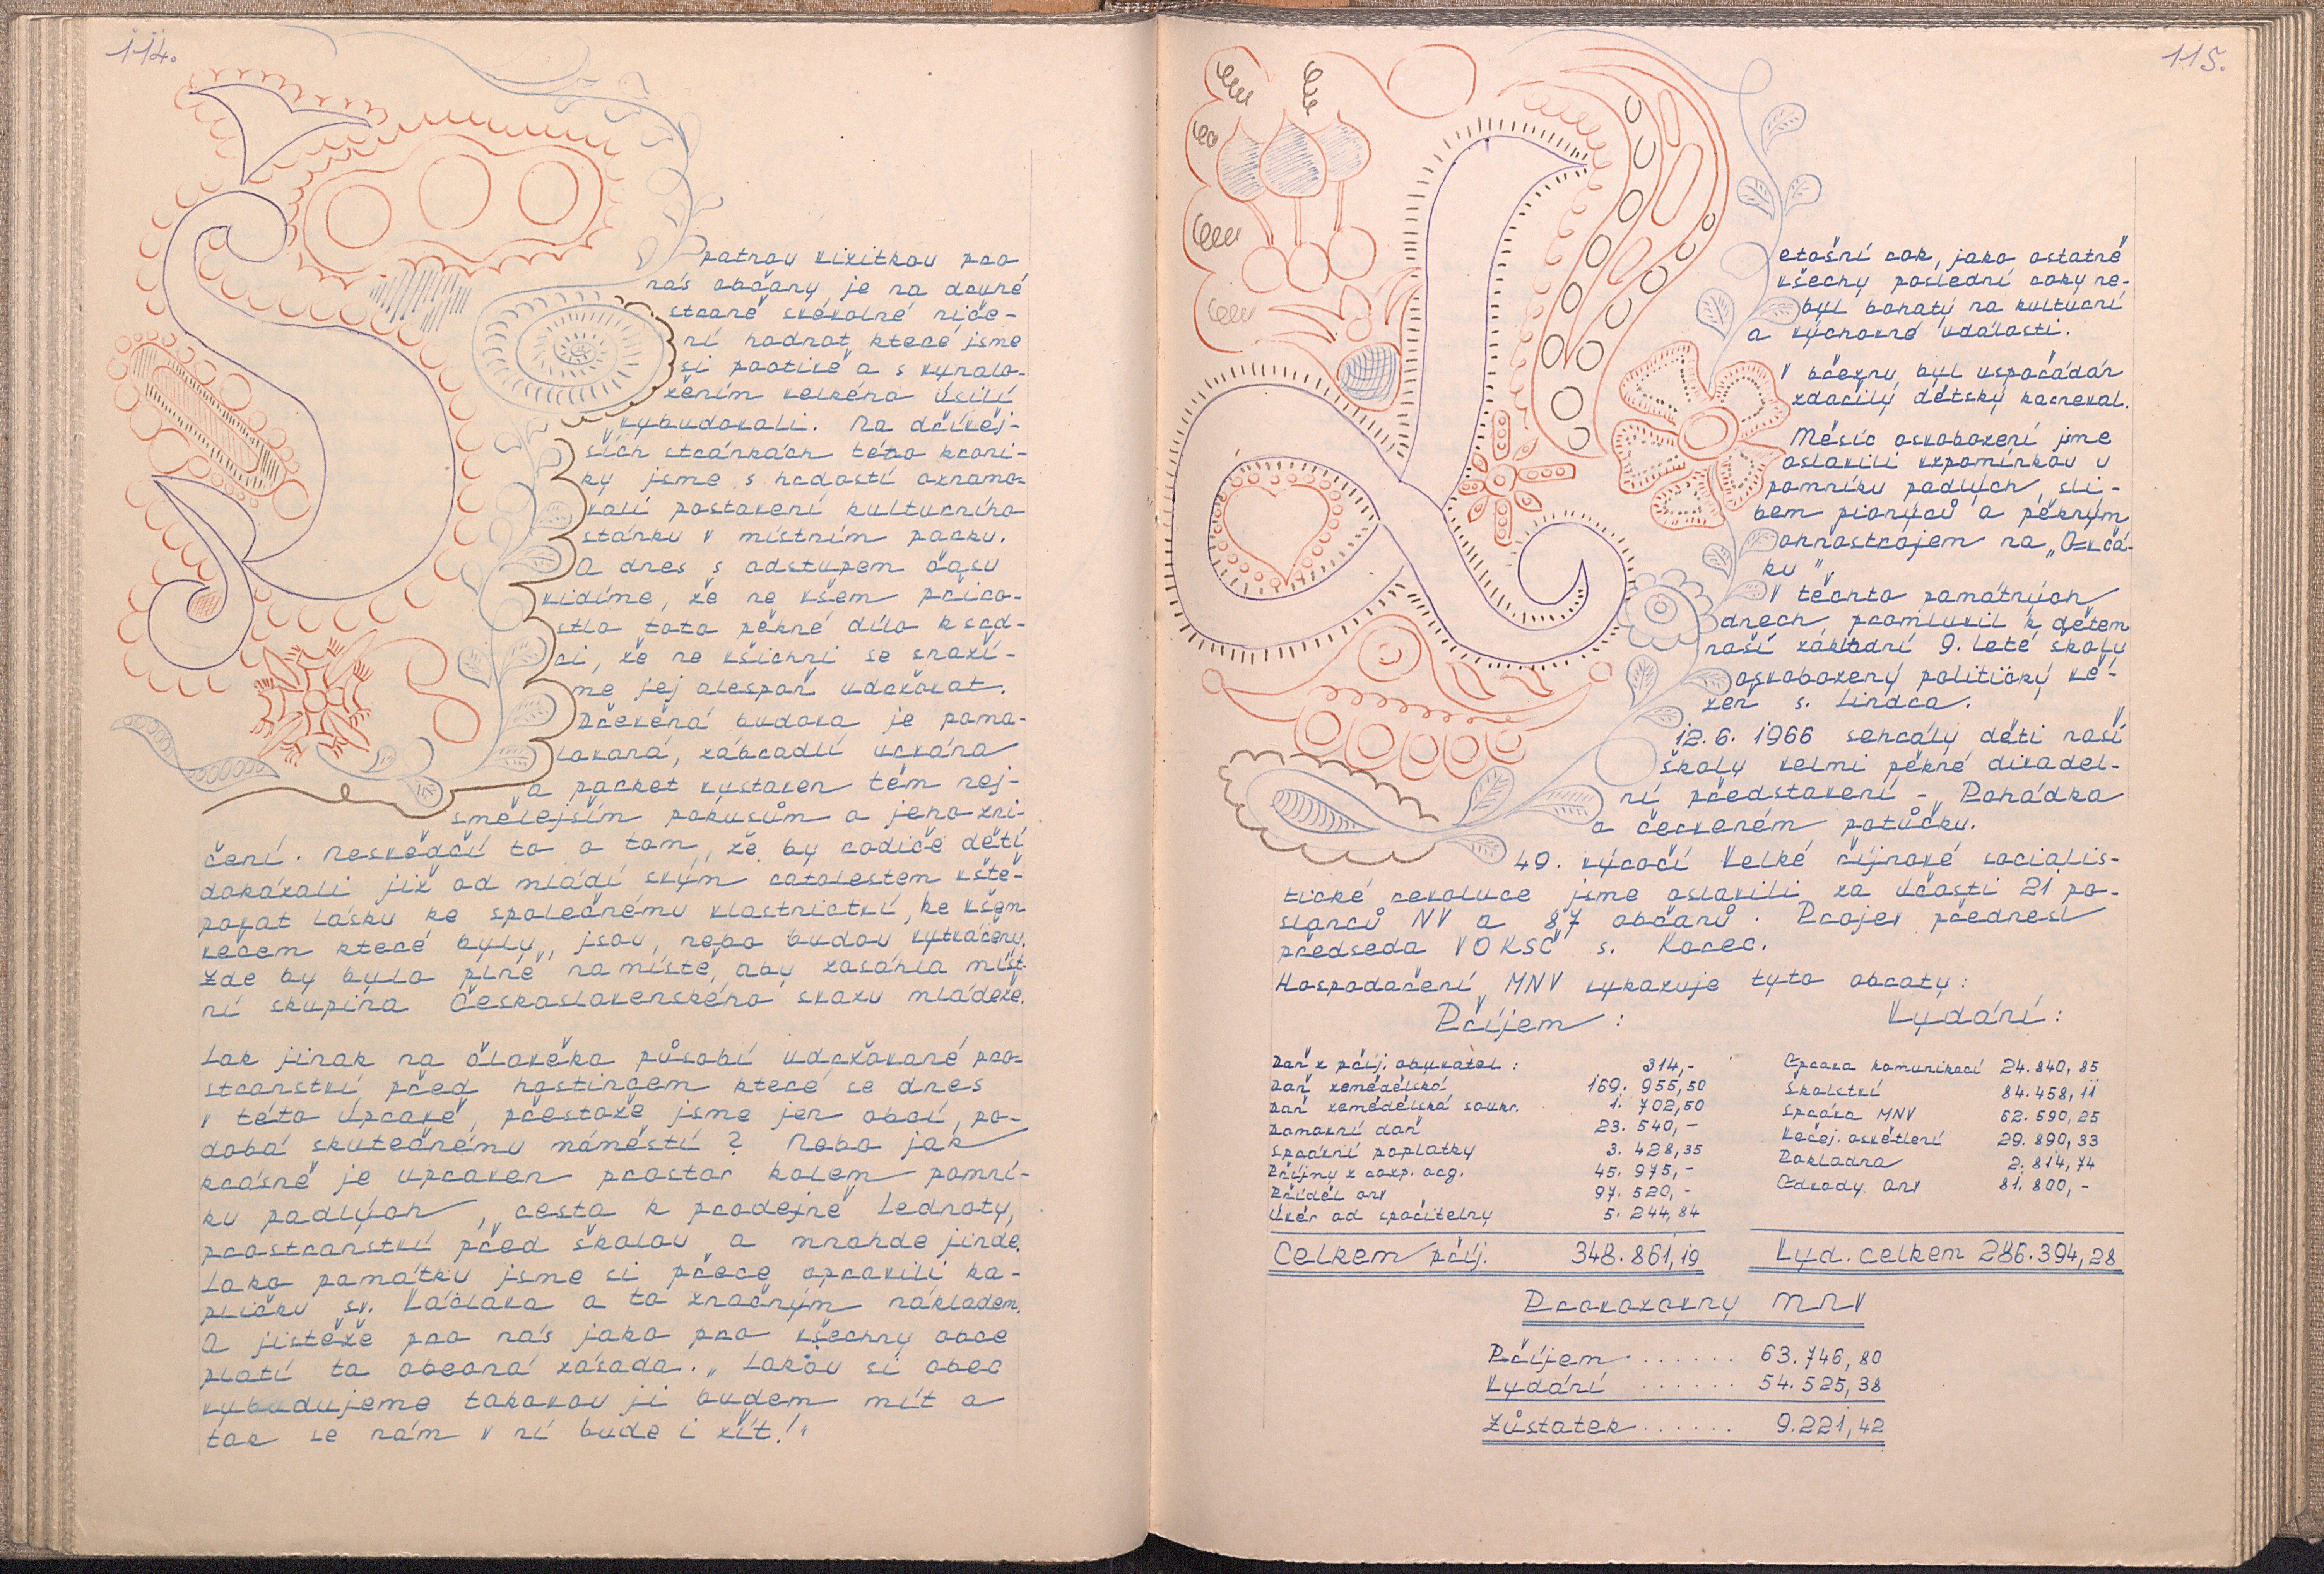 114.
Špatnou vizitkou pro
nás občany je na druhé
straně svévolné niče-
ní hodnot, které jsme
si poctivě a s vynalo-
žením velkého úsilí
vybudovali. Na dřívěj-
ších stránkách této kroni-
ky jsme s hrdostí oznamo-
vali postavení kulturního
stánku v místním parku.
A dnes s odstupem času
vidíme, že ne všem přiro-
stlo toto pěkné dílo k srd-
ci, že ne všichni se snaží-
me jej alespoň udržovat.
Dřevěná budova je poma-
lovaná, zábradlí urvána
a parket vystaven těm nej-
smělejším pokusům o jeho zni-
čení. Nesvědčí to o tom, že by rodiče dětí
dokázali již od mládí svým ratolestem vště-
povat lásku ke společnému vlastnictví, ke všem
věcem které byly, jsou, nebo budou vytvářeny.
Zde by bylo plně na místě, aby zasáhla míst-
ní skupina Československého svazu mládeže.
Jak jinak na člověka působí udržované pro-
stranství před hostincem které se dnes
v této úpravě, přestože jsme jen obcí, po-
dobá skutečnému náměstí? Nebo jak
krásně je upraven prostor kolem pomní-
ku padlých, cesta k prodejně Jednoty,
prostranství před školou a mnohde jinde.
Jako památku jsme si přece opravili ka-
pličku sv. Václava a to značným nákladem.
A jistěže pro nás jako pro všechny obce
platí ta obecná zásada. „Jakou si obec
vybudujeme takovou ji budem mít a
tak se nám v ní bude i žít!"
115.
Letošní rok, jako ostatně
všechy poslední roky ne-
byl bohatý na kulturní
a výchovné události.
V březnu byl uspořádán
zdařilý dětský karneval.
Měsíc osvobození jsme
oslavili vzpomínkou u
pomníku padlých, sli-
bem pionýrů a pěkným
ohňostrojem na „Ovčá-
ku".
V těchto památných
dnech promluvil k dětem
naší základní 9. leté školy
osvobozený politický vě-
zeň s. Jindra.
12. 6. 1966 sehrály děti naší
školy velmi pěkné divadel-
ní představení - Pohádka
o červeném potůčku.
49. výročí Velké říjnové socialis-
tické revoluce jsme oslavili za účasti 21 po-
slanců NV a 87 občanů. Projev přednesl
předseda VOKSČ s. Korec.
Hospodaření MNV vykazuje tyto obraty:
Příjem: Vydání:
Daň z příj. obyvatel: 314,- Oprava komunikací 24.840,85
Daň zemědělská 169. 955,50 Školství 84.458,11
Daň zemědělská soukr. 1. 702,50 Správa MNV 62.590,25
Domovní daň 23. 540,- Veřej. osvětlení 29.890,33
Správní poplatky 3. 428,35 Pokladna 2.814,74
Příjmy z rozp. org. 45. 975,- Odvody ONV 81.800,-
Příděl ONV 97. 520,-
Úvěr od spořitelny 5. 244,84
Celkem příj. 348.861,19 Vyd. celkem 286.394,28
Provozovny MNV
Příjem ...... 63.746,80
Vydání ...... 54.525,38
Zůstatek ...... 9.221,42